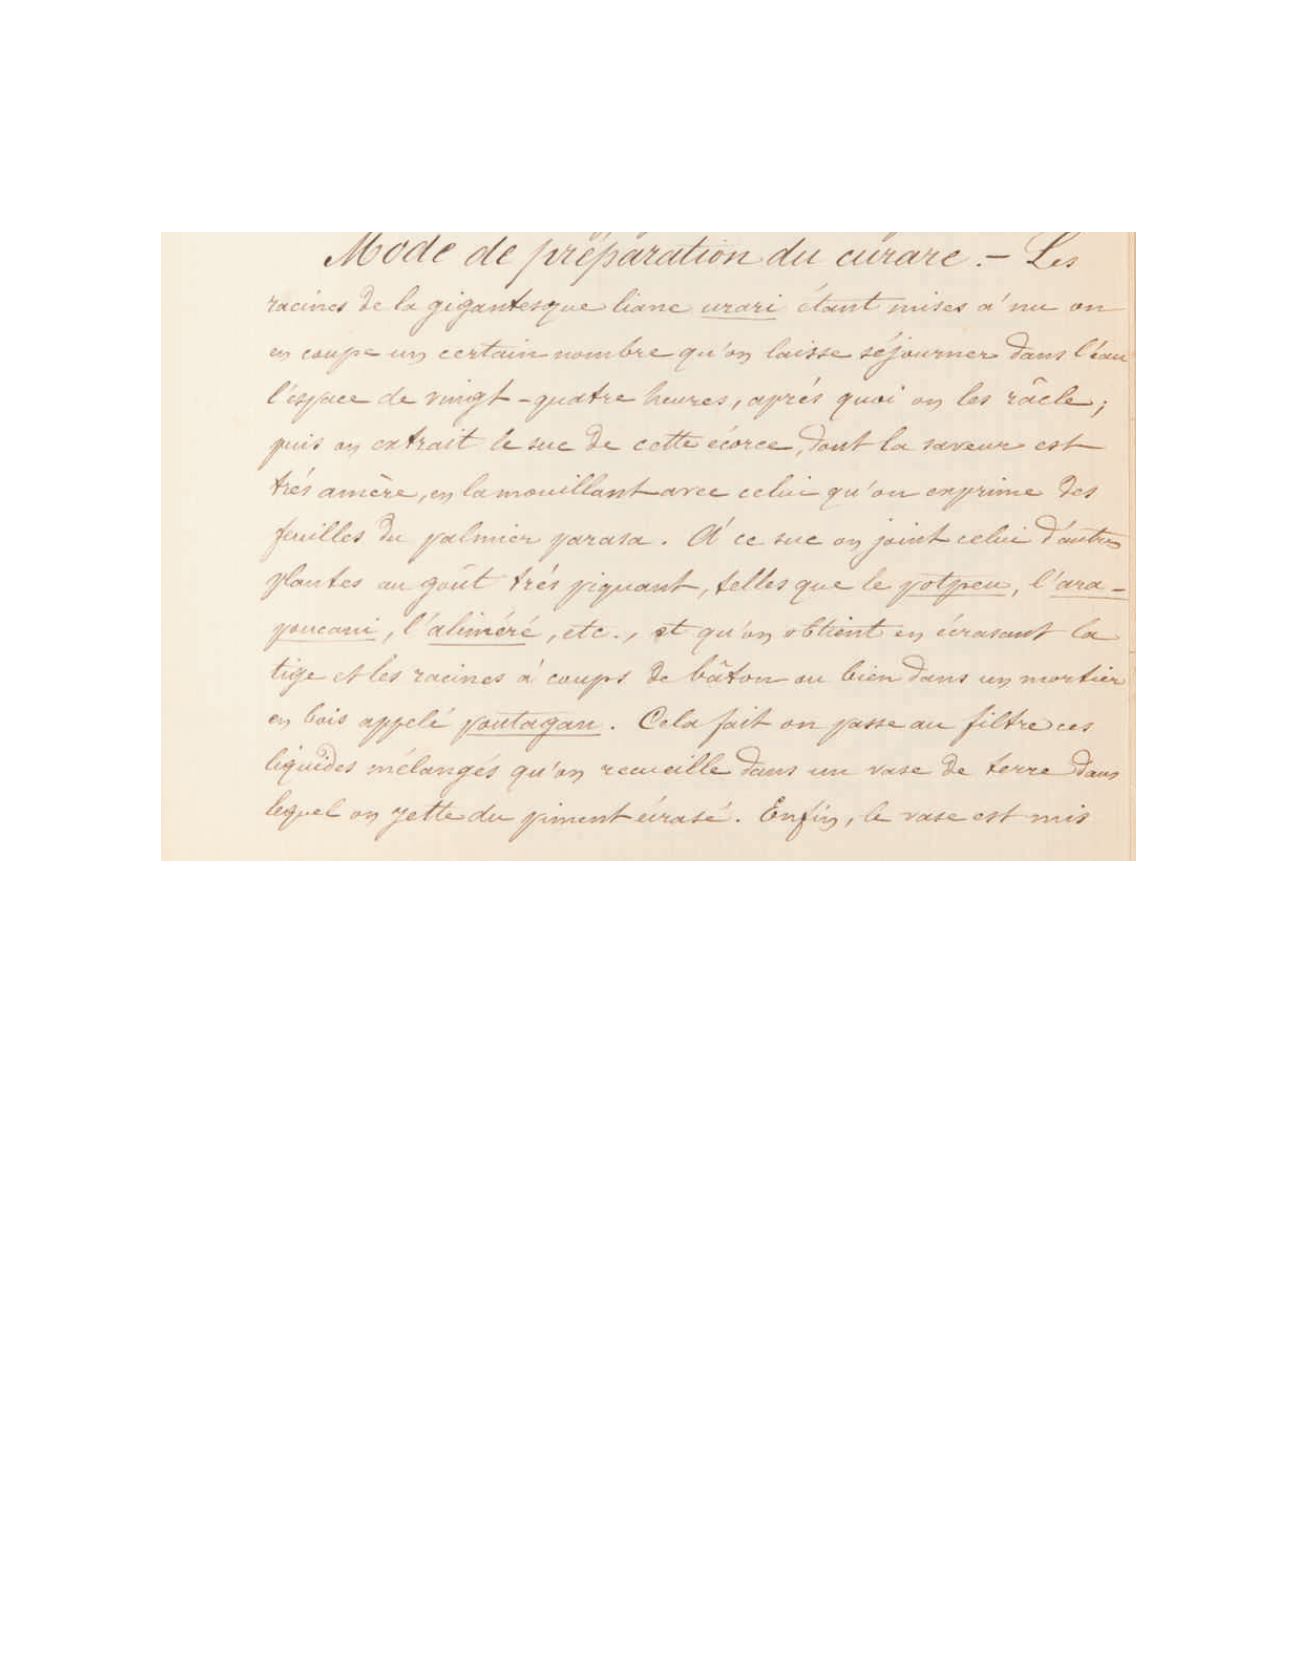 Mode de préparation du curare. — Les
racines de la gigantesque liane urari étant mises à nu on
en coupe un certain nombre qu'on laisse séjourner dans l'eau
l'espace de vingt-quatre heures, après quoi on les râcle ;
puis on extrait le suc de cette écorce, dont la saveur est
très amère, en la mouillant avec celui qu'on exprime des
feuilles du palmier parasa. A ce suc on joint celui d'autres
plantes au goût très piquant, telles que le potpeu, l'ara-
poucani, l'aliméré, etc., et qu'on obtient en écrasant la
tige et les racines à coups de bâton ou bien dans un mortier
en bois appelé poutagan. Cela fait on passe au filtre ces
liquides mélangés qu'on recueille dans un vase de terre dans
lequel on jette du piment écrasé. Enfin, le vase est mis